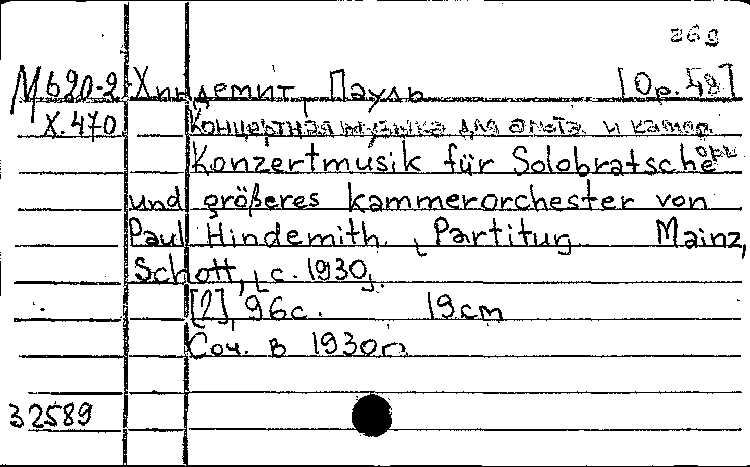 269
М620-2 Хиндемит, Пауль [Op. 48]
Х.470 Концертная музыка для альта и камер.
орк.
Konzertmusik für Solobratsche
und größeres kammerorchester von
Paul Hindemith. Partitur. Mainz,
Schott, [c. 1930].
[2], 96 с. 19 cm
Соч. в 1930 г.
32589